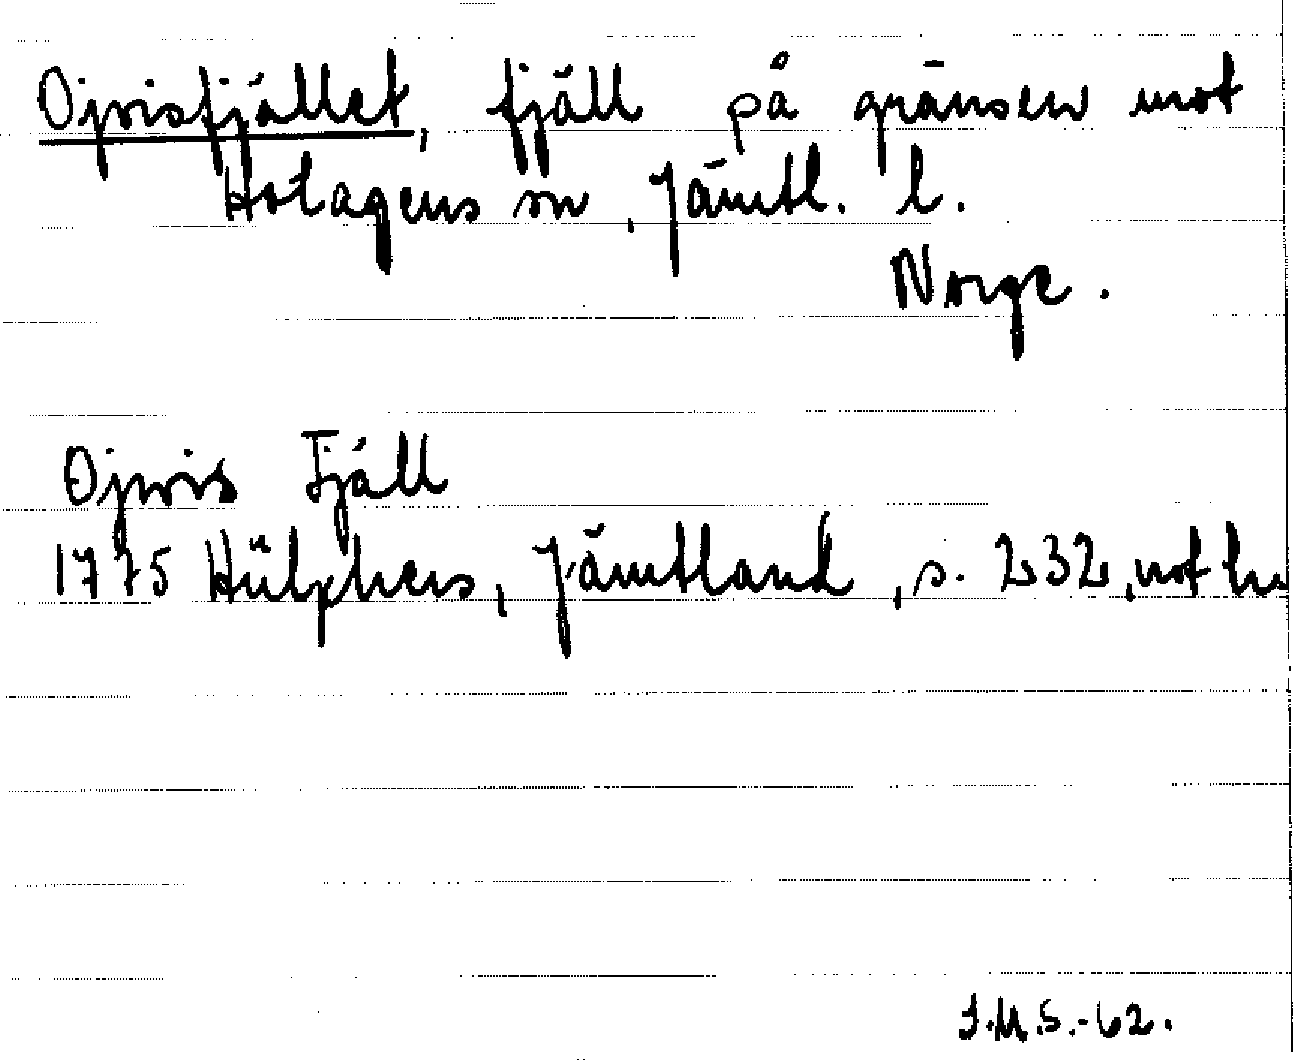 Ojvisfjället, fjäll på gränsen mot
Hotagens sn, Jämtl. l.
Norge.
Ojwis Fjäll
1775 Hülphers, Jämtland, s. 232, not
J.M.S.-62.